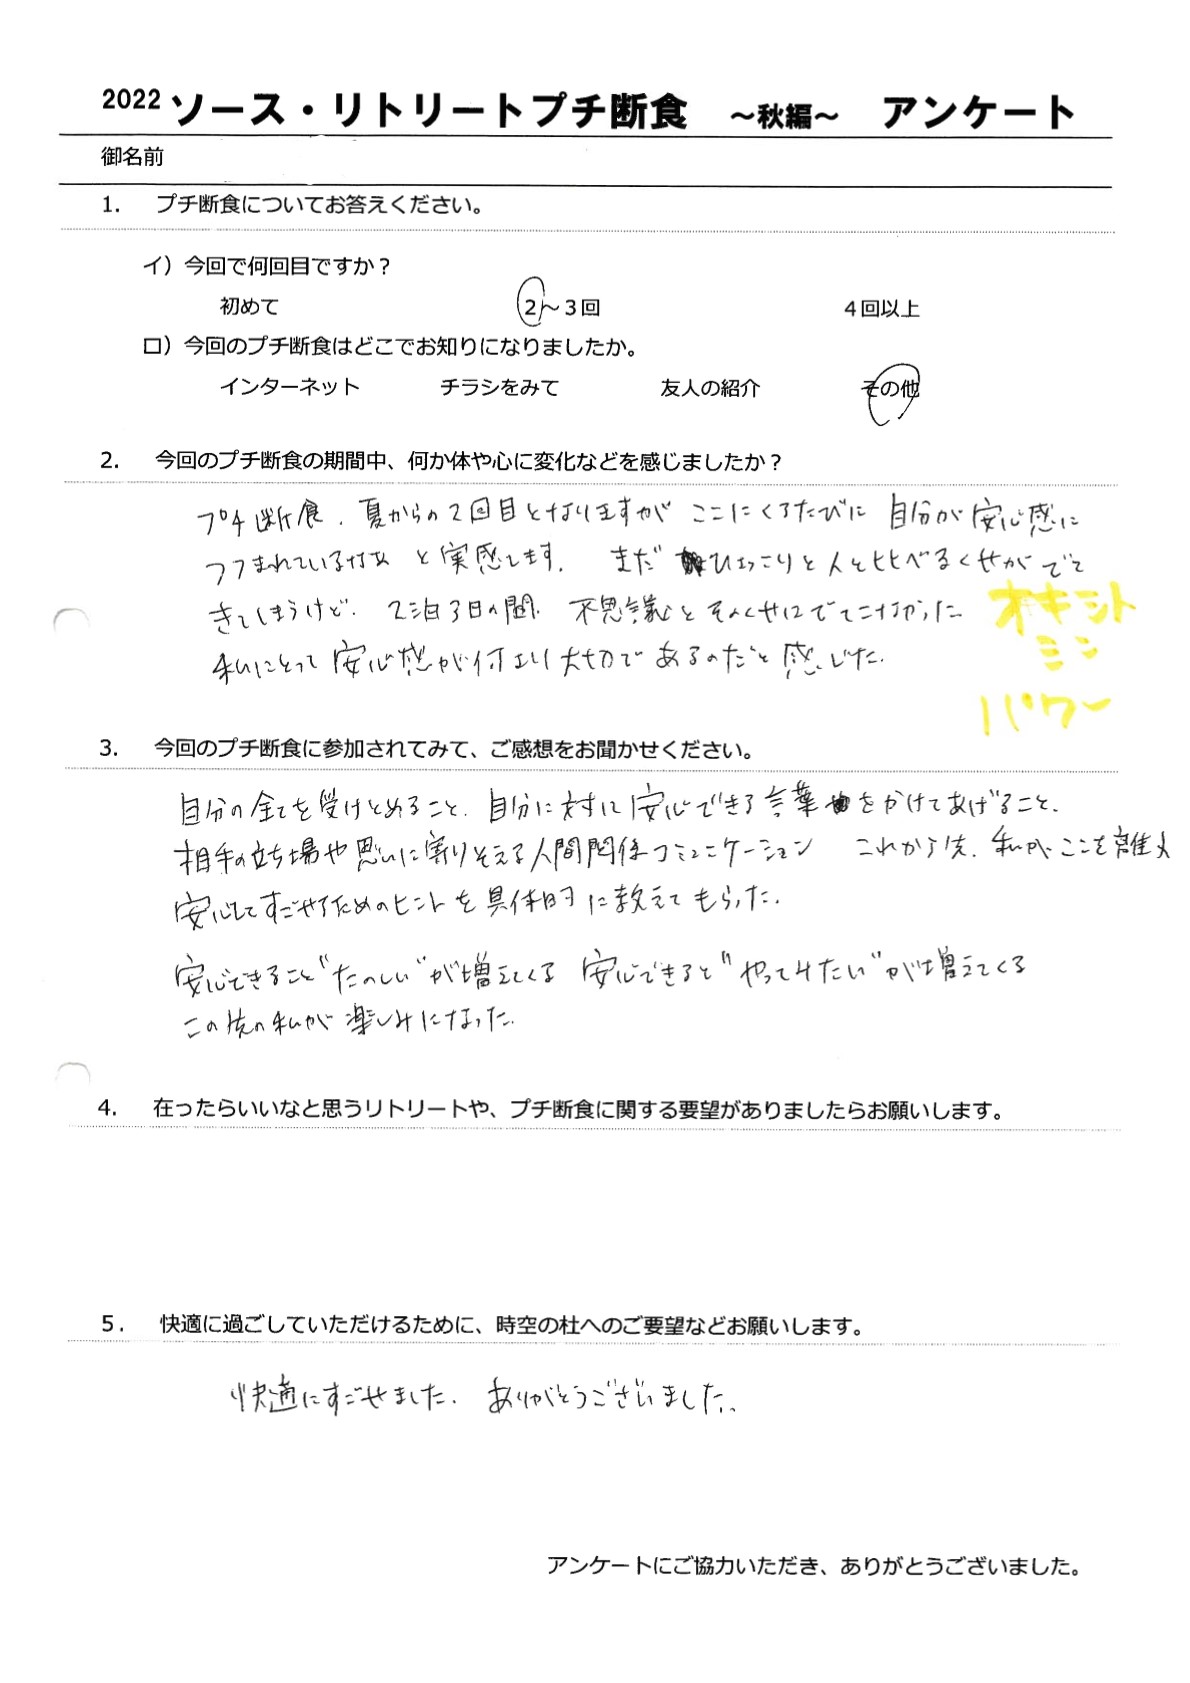 2022 ソース・リトリートプチ断食 ～秋編～ アンケート
御名前
1. プチ断食についてお答えください。
イ）今回で何回目ですか？
初めて 2～3回 4回以上
ロ）今回のプチ断食はどこでお知りになりましたか。
インターネット チラシをみて 友人の紹介 その他
2. 今回のプチ断食の期間中、何か体や心に変化などを感じましたか？
プチ断食、夏からの2回目となりますが ここにくるたびに 自分が安心感に
つつまれているなぁ と実感します。 まだ ひょっこりと人と比べるくせがでて
きてしまうけど、2泊3日の間、不思議とそのくせはでてこなかった
私にとって安心感が何より大切であるのだと感じた。
オキシト
シン
パワー
3. 今回のプチ断食に参加されてみて、ご感想をお聞かせください。
自分の全てを受けとめること、自分に対して安心できる言葉をかけてあげること、
相手の立ち場や思いに寄りそえる人間関係コミュニケーション これから先、私が、ここを離れ
安心してすごせるためのヒントを具体的に教えてもらった。
安心できること"たのしい"が増えてくる 安心できると"やってみたい"が増えてくる
この先の私が楽しみになった。
4. 在ったらいいなと思うリトリートや、プチ断食に関する要望がありましたらお願いします。
5. 快適に過ごしていただけるために、時空の杜へのご要望などお願いします。
快適にすごせました。 ありがとうございました。
アンケートにご協力いただき、ありがとうございました。